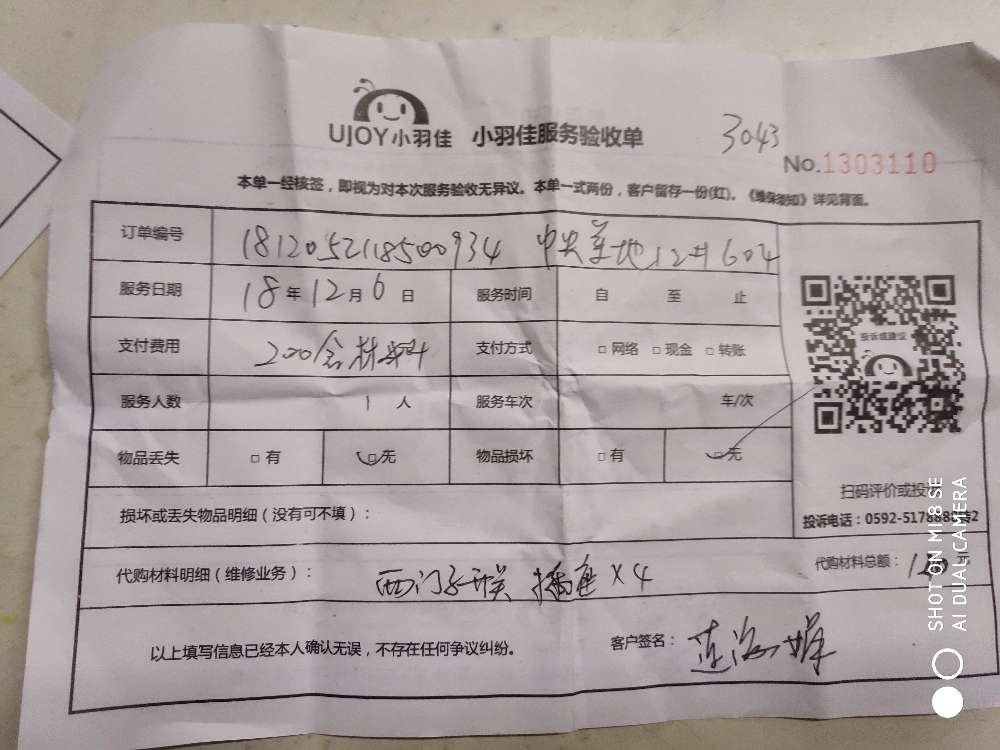 UJOY小羽佳 小羽佳服务验收单 3043
No.1303110
本单一经核签，即视为对本次服务验收无异议。本单一式两份，客户留存一份(红)。《维保须知》详见背面。
订单编号 1812052118500934 中央美地12#604
服务日期 18年12月6日 服务时间 自 至 止
支付费用 200含材料 支付方式 □网络 □现金 □转账
服务人数 1人 服务车次 车/次
物品丢失 □有 □无 物品损坏 □有 □无
投诉或建议
扫码评价或投
投诉电话：0592-5178888转2
损坏或丢失物品明细（没有可不填）：
代购材料明细（维修业务）： 西门子开关 插座×4 代购材料总额： 120元
以上填写信息已经本人确认无误，不存在任何争议纠纷。 客户签名：
SHOT ON MI 8 SE
AI DUAL CAMERA